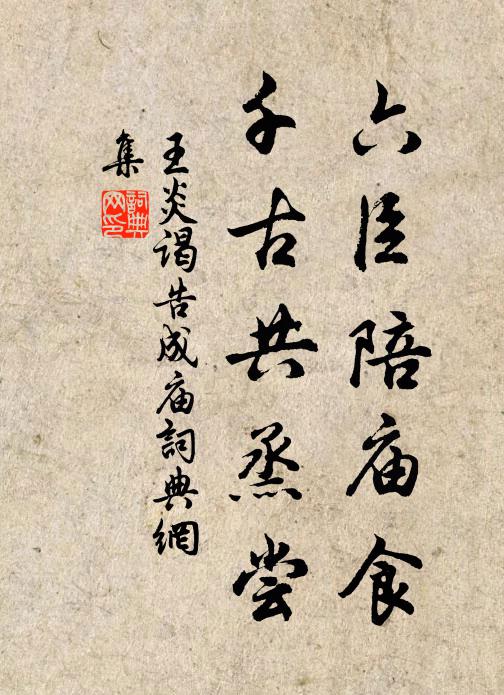 六臣陪庙食
千古共烝尝
王炎谒告成庙詞典網
集
詞典
网印